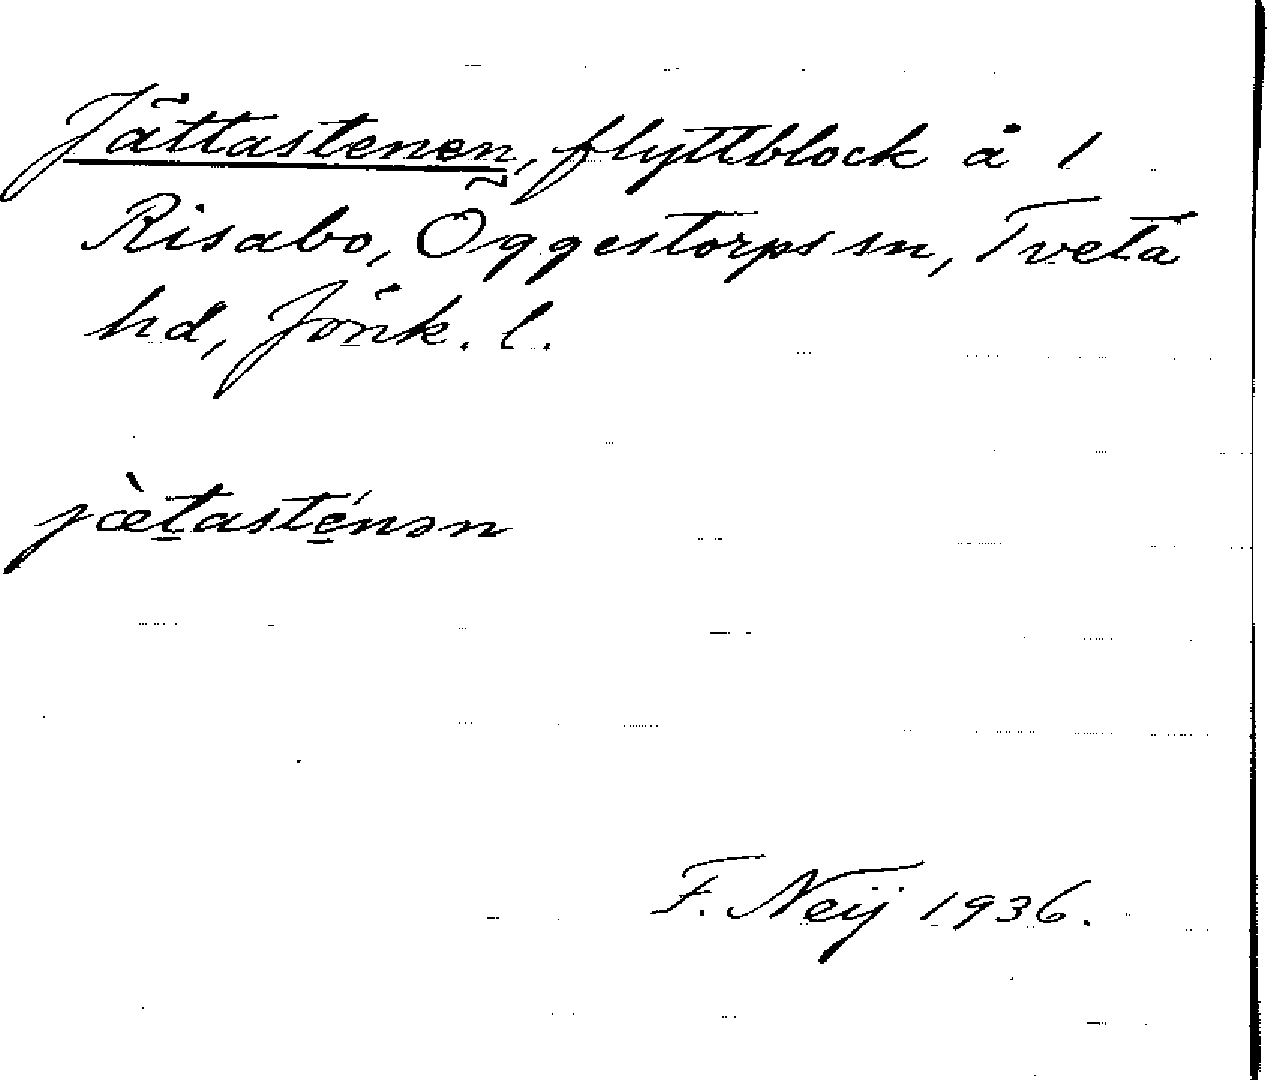 Jättastenen, flyttblock å 1
Risabo, Öggestorps sn, Tveta
hd, Jönk. l.
jæ̀t̲asté̲nən
F. Neij 1936.